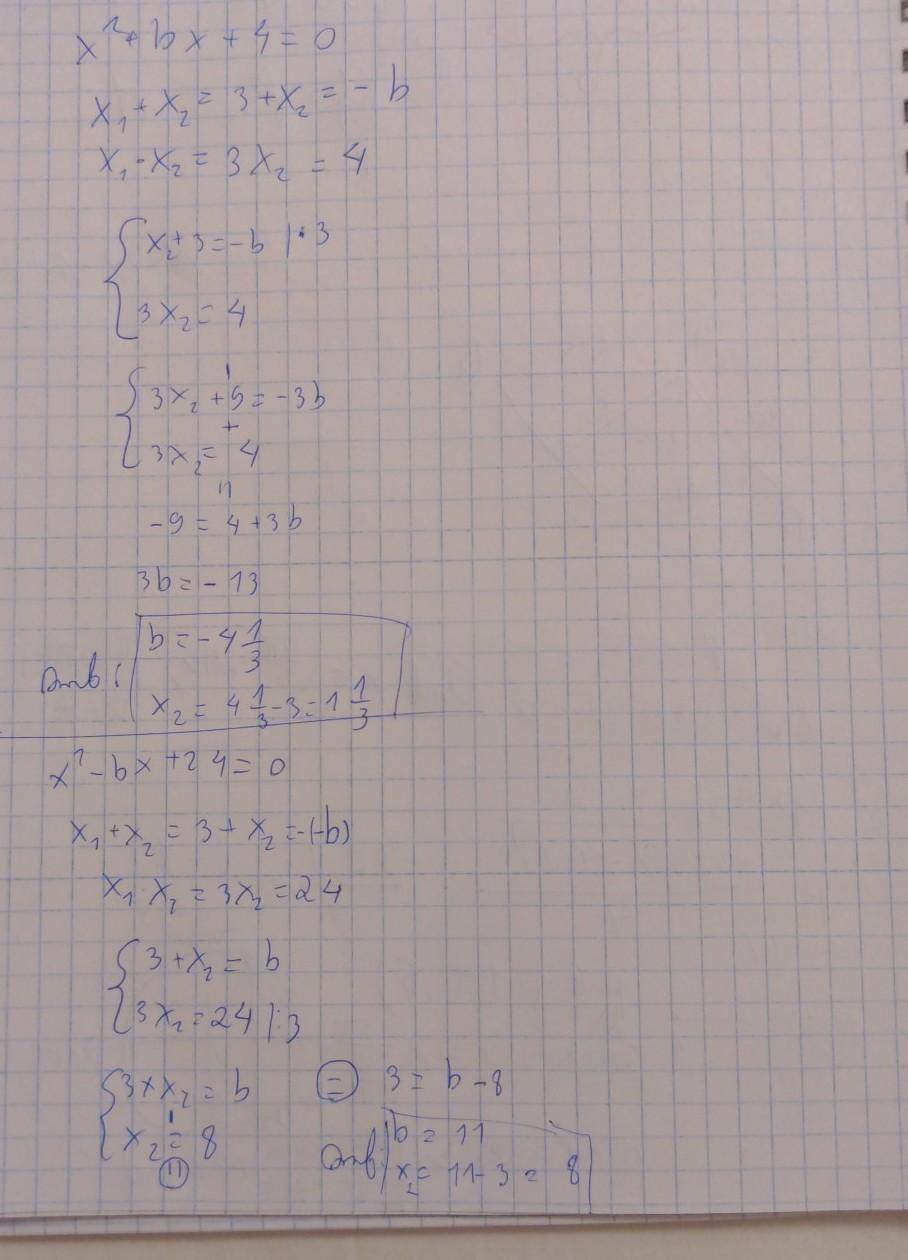 x²+bx+4=0
x₁+x₂=3+x₂=-b
x₁·x₂=3x₂=4
{x₂+3=-b |·3
3x₂=4
{3x₂+9=-3b
+
3x₂=4
-9=4+3b
3b=-13
b=-4 1/3
x₂=4 1/3-3=1 1/3
x²-bx+24=0
x₁+x₂=3+x₂=-(-b)
x₁x₂=3x₂=24
{3+x₂=b
3x₂=24 |:3
{3+x₂=b = 3=b-8
x₂=8
b=11
x₂=11-3=8